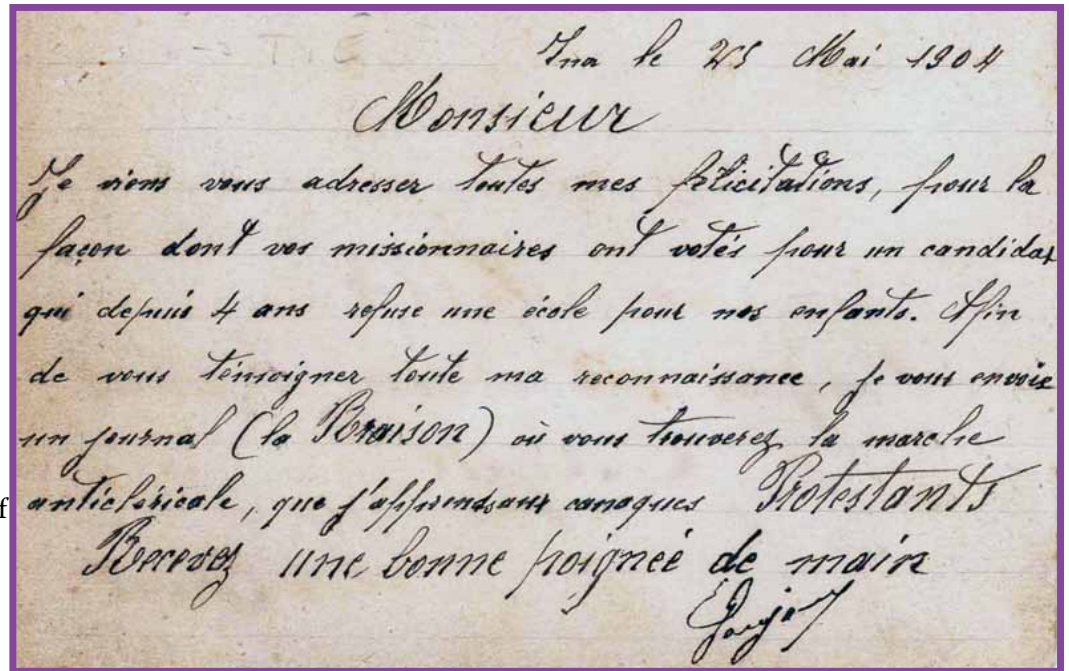 Ina le 25 Mai 1904
Monsieur
Je viens vous adresser toutes mes félicitations, pour la
façon dont vos missionnaires ont votés pour un candidat
qui depuis 4 ans refuse une école pour nos enfants. Afin
de vous témoigner toute ma reconnaissance, je vous envoie
un journal (la Raison) où vous trouverez la marche
f anticléricale, que j'apprends aux canaques Protestants
Recevez une bonne poignée de main